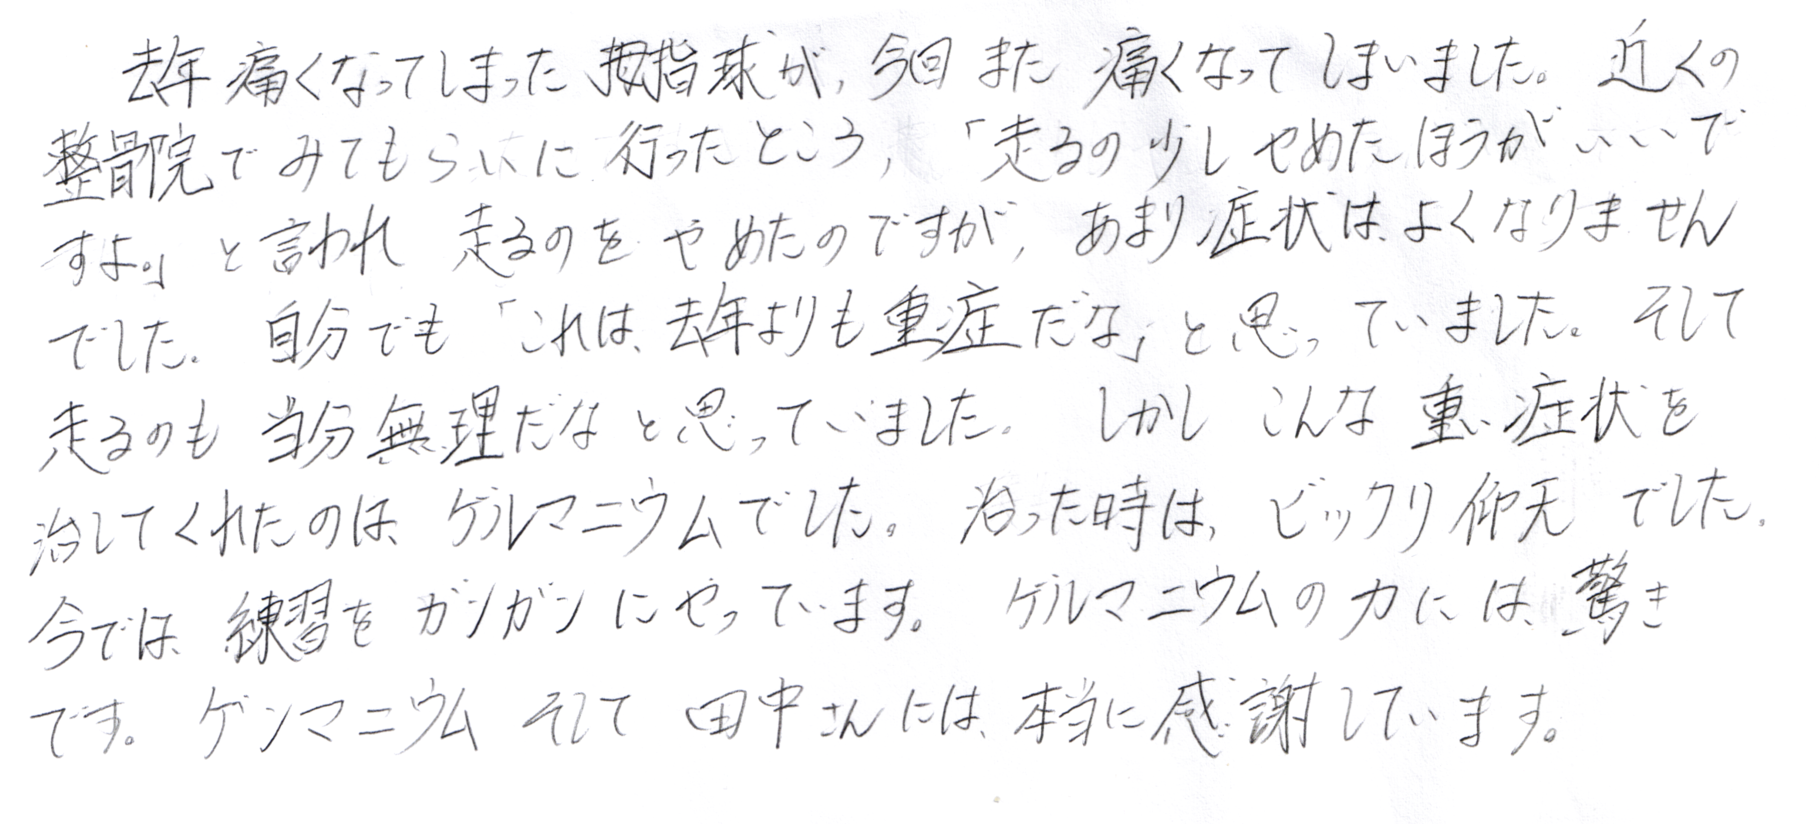 去年痛くなってしまった拇指球が、今回また痛くなってしまいました。近くの
整骨院でみてもらいに行ったところ、「走るの少しやめたほうがいいで
すよ。」と言われ走るのをやめたのですが、あまり症状は、よくなりません
でした。自分でも「これは、去年よりも重症だな」と思っていました。そして
走るのも当分無理だなと思っていました。しかしこんな重い症状を
治してくれたのは、ゲルマニウムでした。治った時は、ビックリ仰天でした。
今では、練習をガンガンにやっています。ゲルマニウムの力には、驚き
です。ゲンマニウムそして田中さんには、本当に感謝しています。